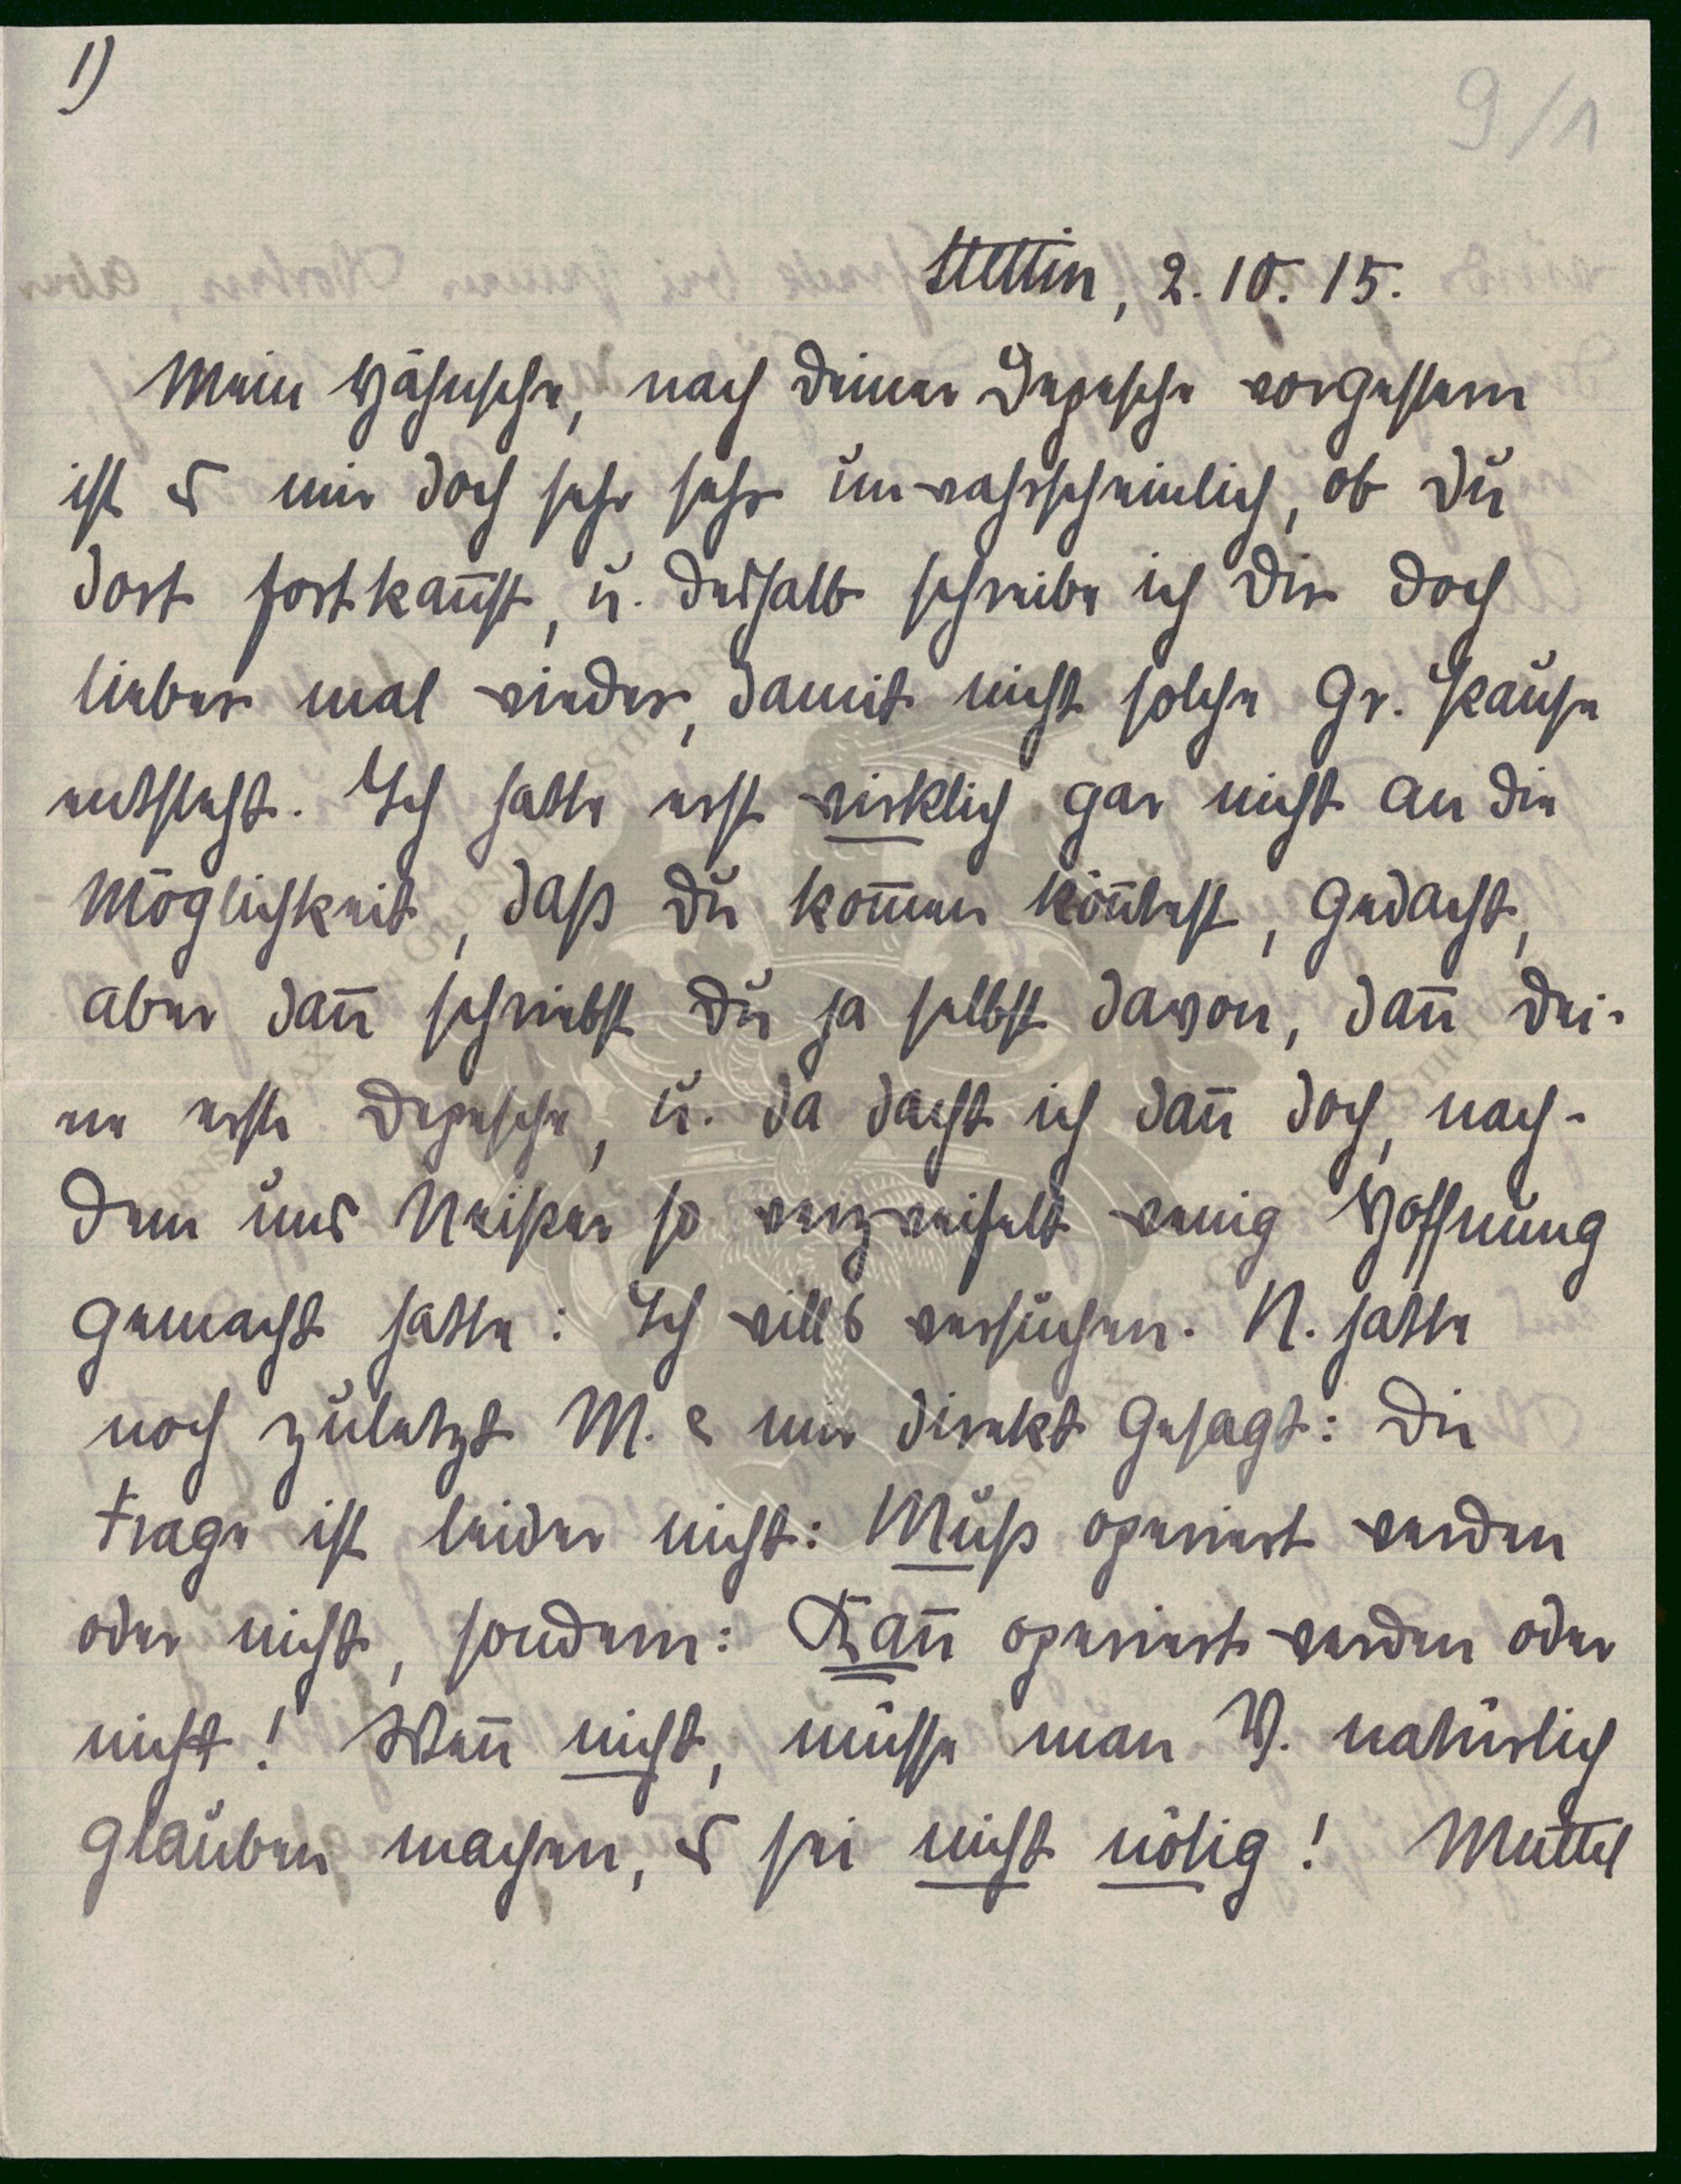 1)
9/1
Stettin, 2.10.15.
Mein Hähnsche, nach Deiner Depesche vorgestern
ist es mir doch sehr sehr unwahrscheinlich, ob Du
dort fortkannst, u. deshalb schreibe ich Dir doch
lieber mal wieder, damit nicht solche gr. Pause
entsteht. Ich hatte erst wirklich gar nicht an die
Möglichkeit, daß Du kommen könntest, gedacht,
aber dann schriebst Du ja selbst davon, dann Dei-
ne erste Depesche, u. da dacht ich dann doch, nach-
dem uns Neißer so verzweifelt wenig Hoffnung
gemacht hatte: Ich will's versuchen. N. hatte
noch zuletzt M. & mir direkt gesagt: Die
Frage ist leider nicht: Muß operiert werden
oder nicht, sondern: Kann operiert werden oder
nicht! Wenn nicht, müsse man V. natürlich
glauben machen, es sei nicht nötig! Muttel